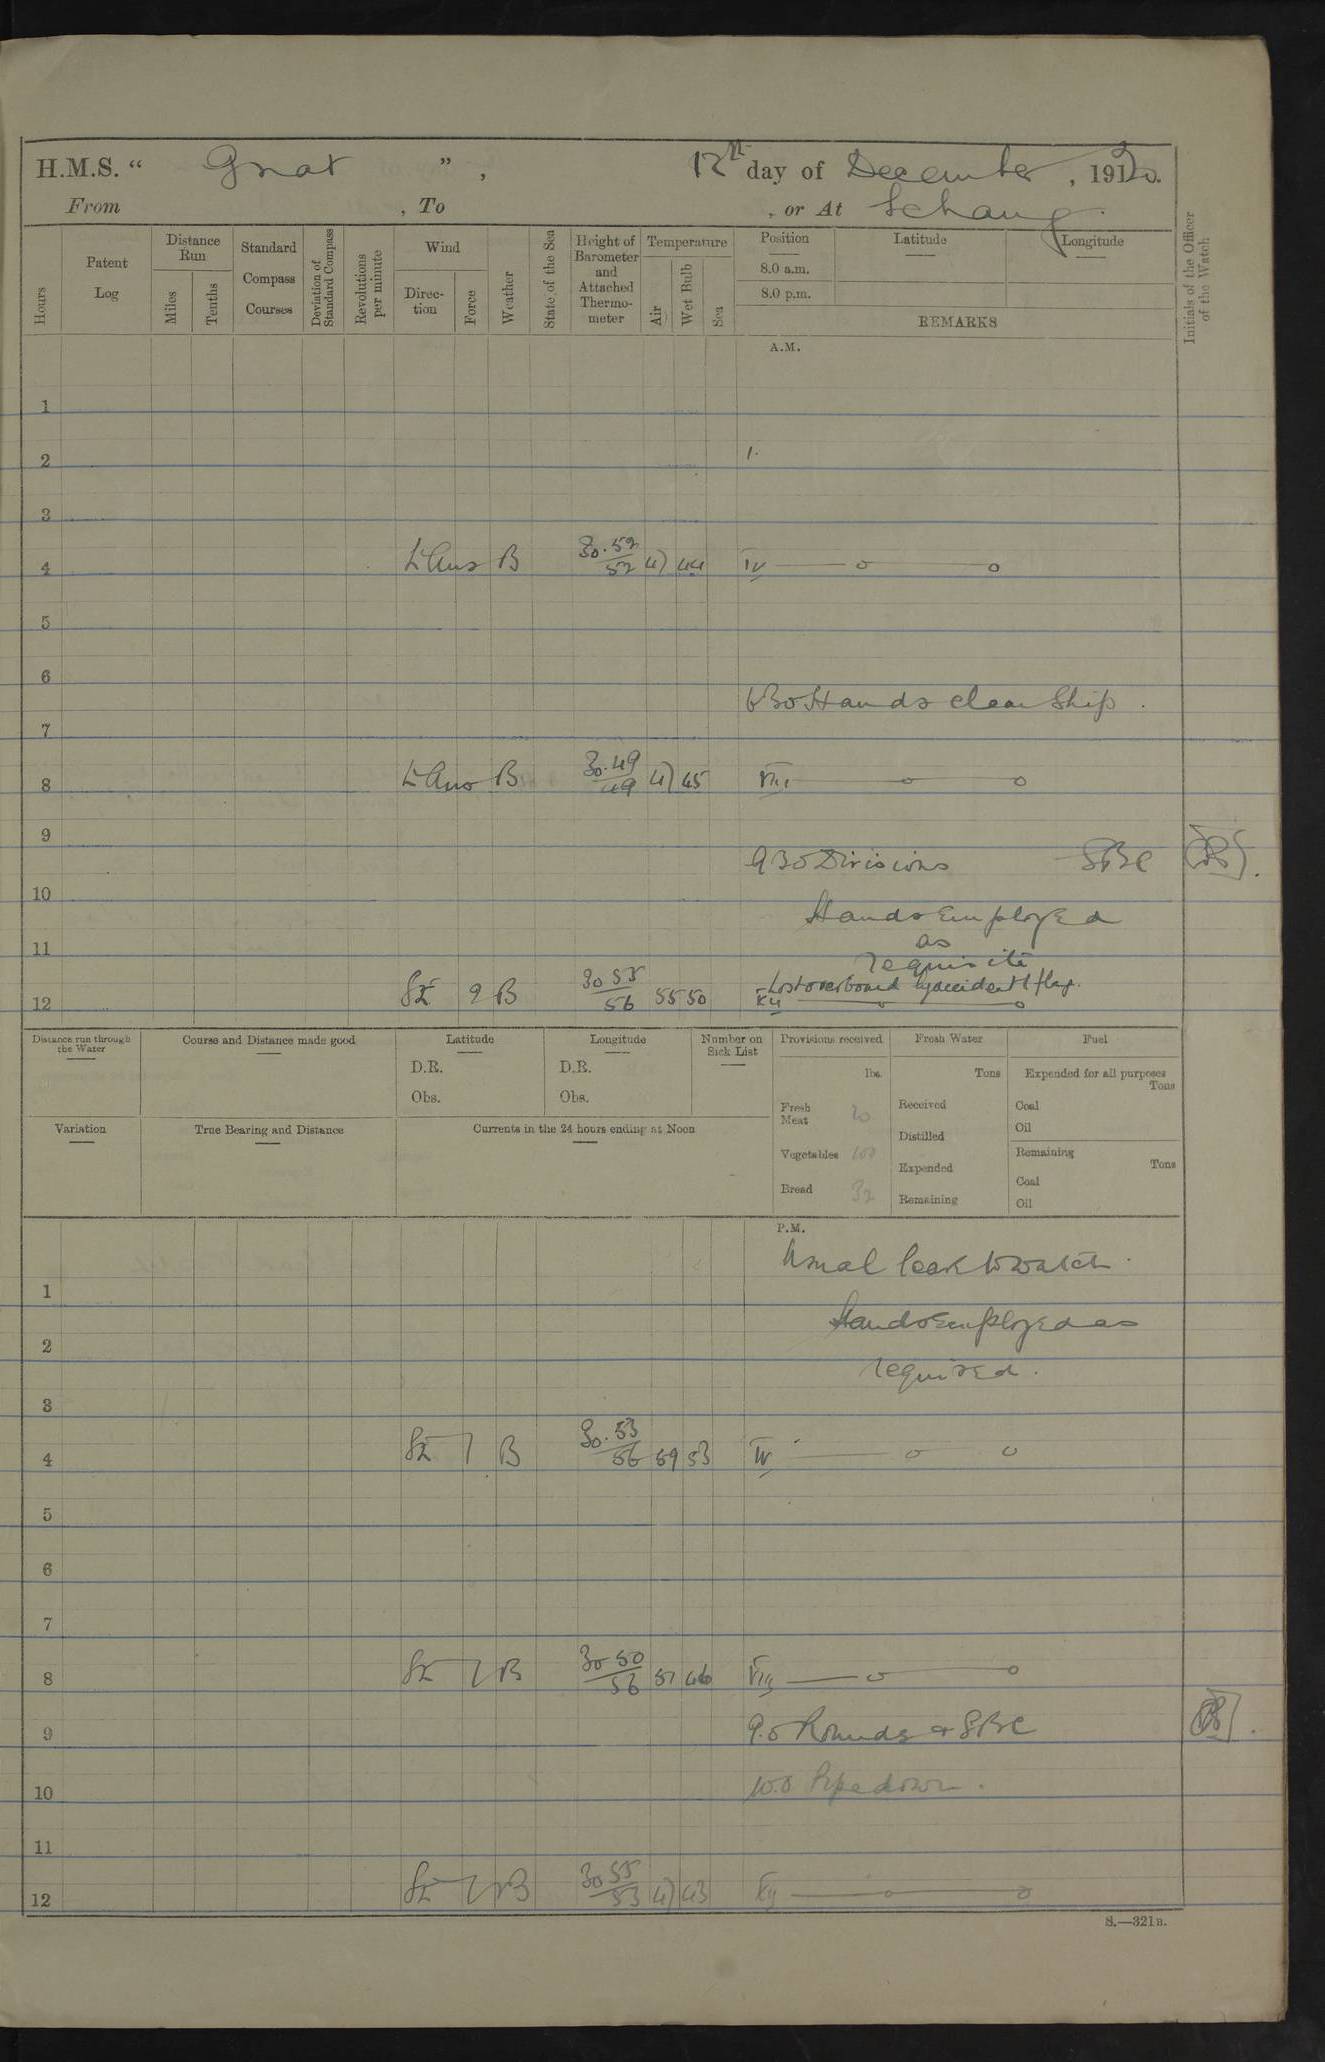 H.M.S. “ Gnat ” , 12th day of December , 1920.
From , To , or At Ichang.
Hours
Patent Log
Distance Run
Miles
Tenths
Standard Compass Courses
Deviation of Standard Compass
Revolutions per minute
Wind
Direction
Force
Weather
State of the Sea
Height of Barometer and Attached Thermometer
Temperature
Air
Wet Bulb
Sea
Position
8.0 a.m.
8.0 p.m.
Latitude
Longitude
REMARKS
Initials of the Officer of the Watch
A.M.
1
2
3
4 B 30.52 52 47 44 IV —— o —— o
5
6
6 30 Hands clean Ship.
7
8 B 30.49 49 47 45 VIII —— o —— o
9
9 30 Divisions SBC
10
Hands employed
11 as
requisite
Lost overboard by accident 1 flag.
12 SE B 30 55 56 55 50 XII —— o —— o
Distance run through the Water
Course and Distance made good
Latitude
D.R.
Obs.
Longitude
D.R.
Obs.
Number on Sick List
Provisions received
lbs.
Fresh Meat 20
Vegetables 100
Bread 32
Fresh Water
Tons
Received
Distilled
Expended
Remaining
Fuel
Expended for all purposes
Tons
Coal
Oil
Remaining
Tons
Coal
Oil
Variation
True Bearing and Distance
Currents in the 24 hours ending at Noon
P.M.
Usual leave to watch.
1
Hands employed as
2
required.
3
4 SE 1 B 30.53 56 59 53 IV —— o —— o
5
6
7
8 SE B 30 50 56 51 46 VIII —— o —— o
9.0 Rounds & SBC
9
10.0 Pipe down.
10
11
12 SE B 30 55 53 47 43 XII —— o —— o
S.—321B.